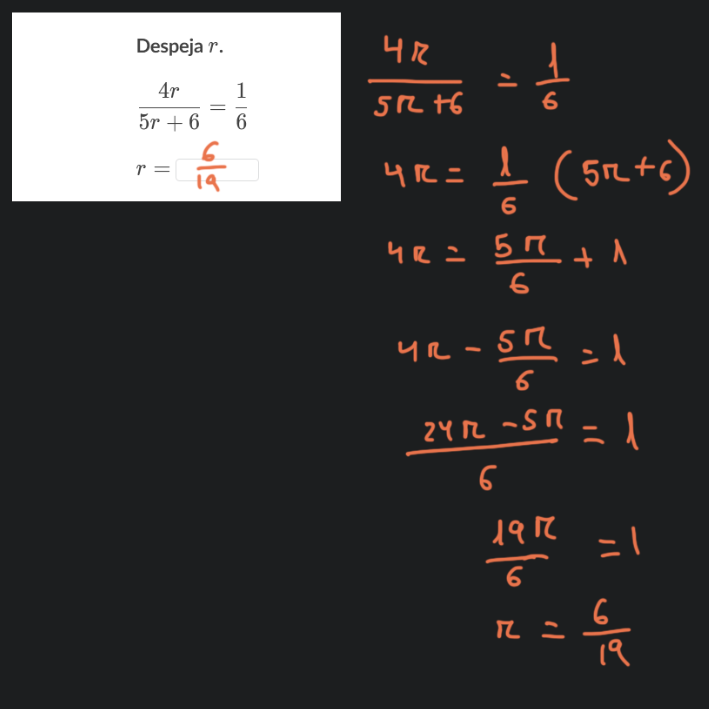 Despeja r.
4r / 5r + 6 = 1 / 6
r = 6 / 19
4r / 5r + 6 = 1 / 6
4r = 1 / 6 (5r + 6)
4r = 5r / 6 + 1
4r - 5r / 6 = 1
24r - 5r / 6 = 1
19r / 6 = 1
r = 6 / 19